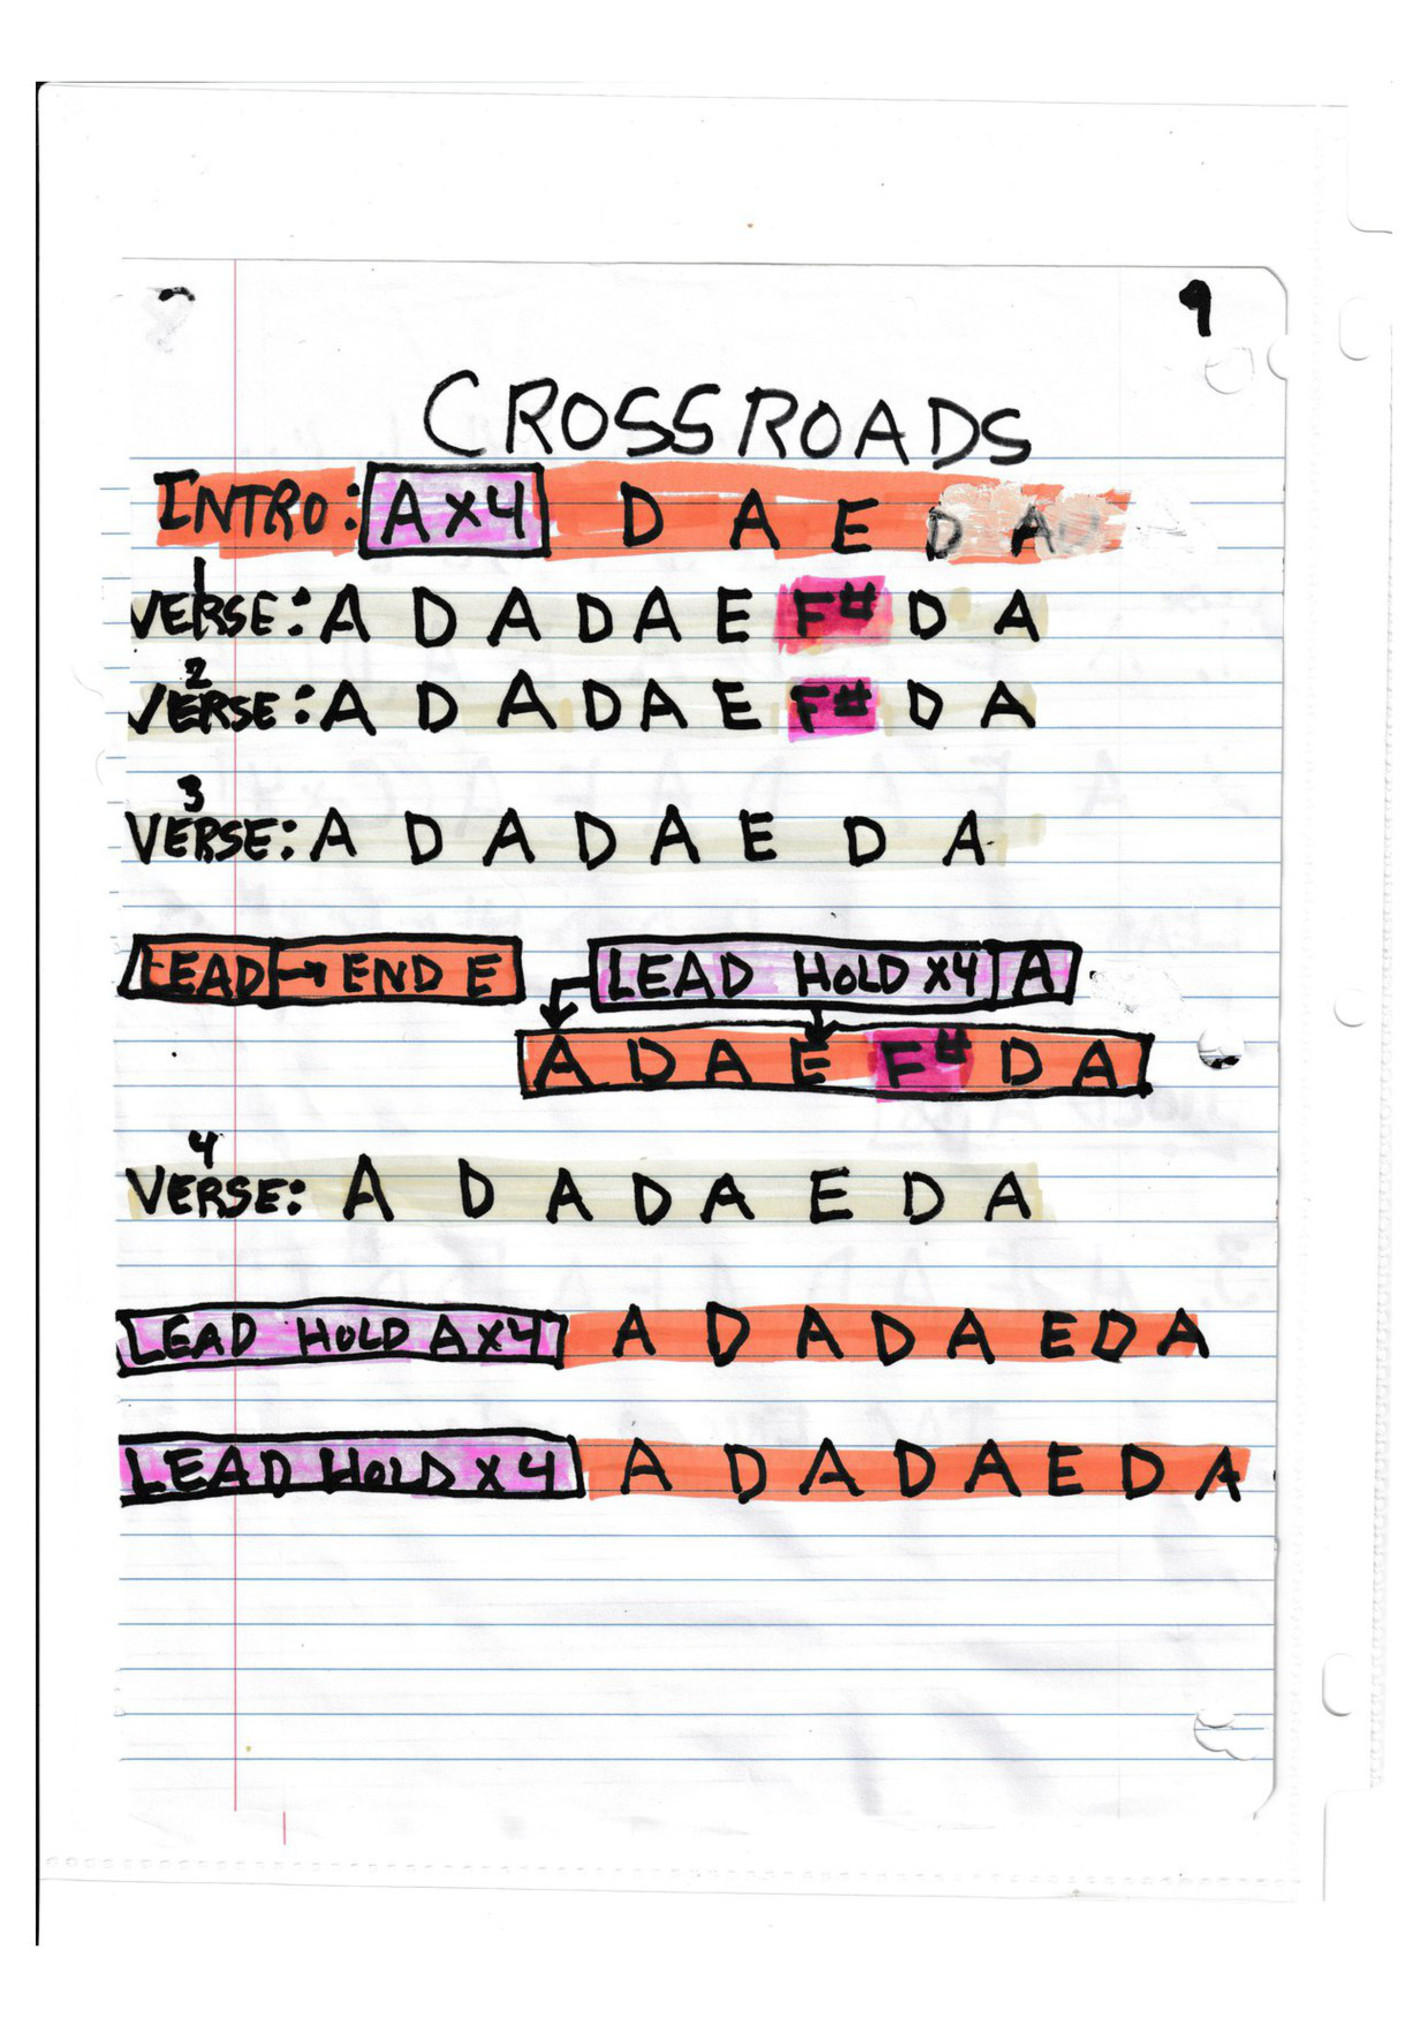 9
CROSSROADS
INTRO: A x4 D A E D A
1
VERSE: A D A D A E F# D A
2
VERSE: A D A D A E F# D A
3
VERSE: A D A D A E D A
LEAD → END E LEAD HOLD x4 A
A D A E F# D A
4
VERSE: A D A D A E D A
LEAD HOLD A x4 A D A D A E D A
LEAD HOLD x 4 A D A D A E D A